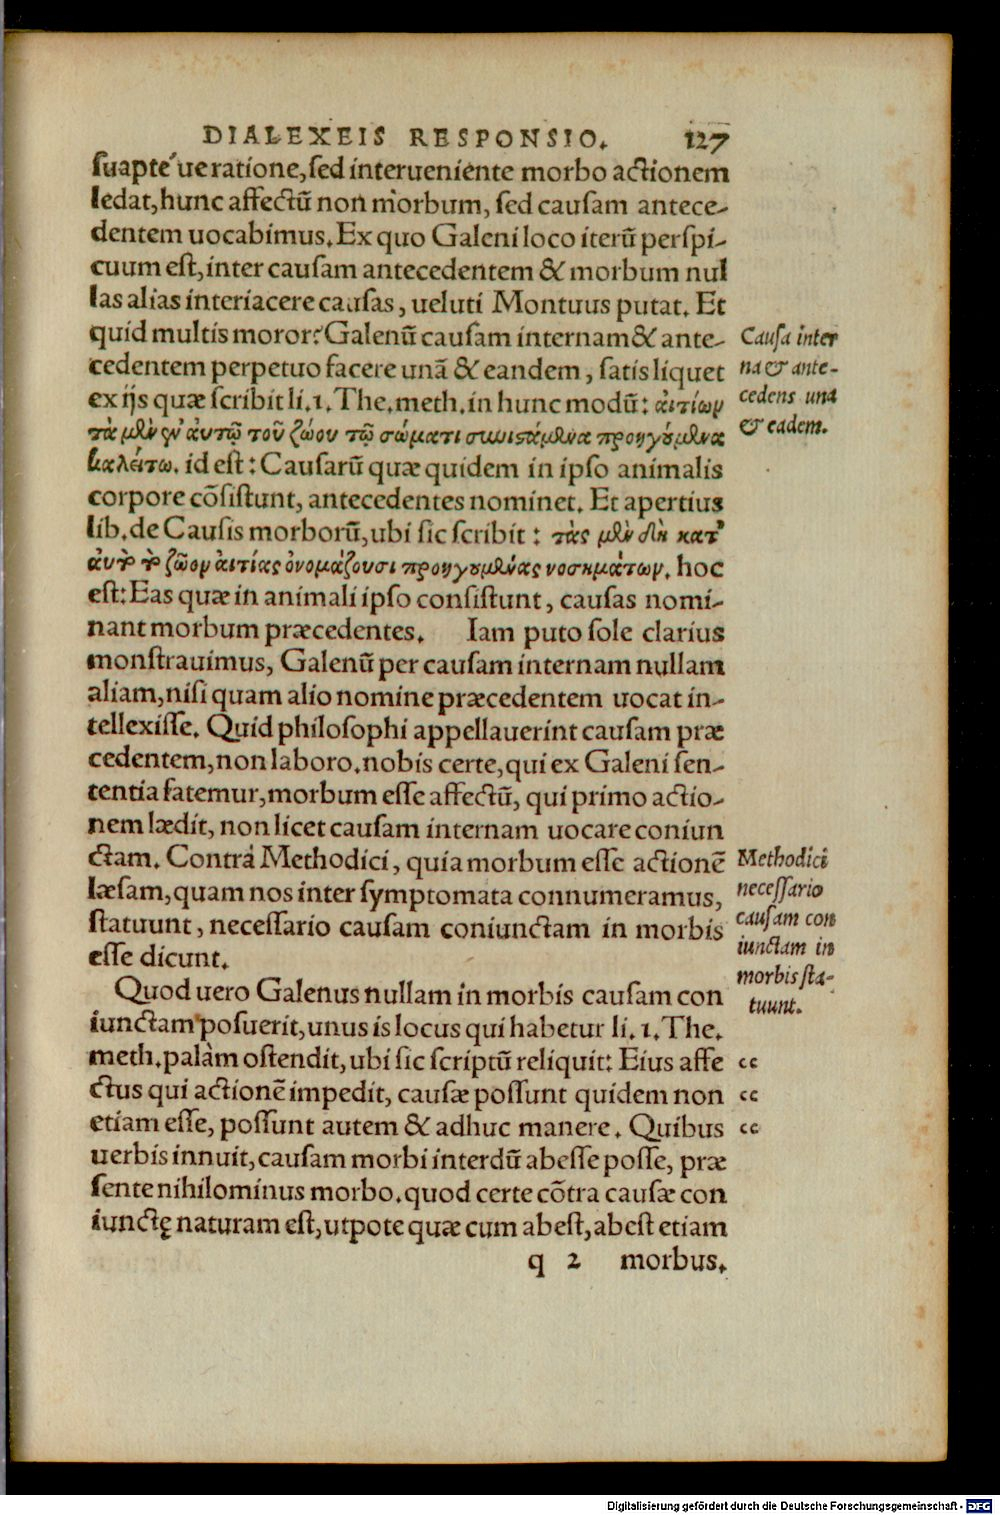 DIALEXEIS RESPONSIO. 127
suapte ue ratione, sed interueniente morbo actionem
ledat, hunc affectũ non morbum, sed causam antece-
dentem uocabimus. Ex quo Galeni loco iterũ perspi-
cuum est, inter causam antecedentem & morbum nul
las alias interiacere causas, ueluti Montuus putat. Et
quid multis moror? Galenũ causam internam & ante-
Causa inter
cedentem perpetuo facere unã & eandem, satis liquet
na & ante-
ex ijs quæ scribit li. 1. The. meth. in hunc modũ: ἀιτίωμ
cedens una
τὰ μὲν ἐν ἀυτῷ τοῦ ζώου τῷ σώματι συνιστάμενα προηγούμενα
& eadem.
καλείτω. id est: Causarũ quæ quidem in ipso animalis
corpore cõsistunt, antecedentes nominet. Et apertius
lib. de Causis morborũ, ubi sic scribit: τὰς μὲν δὴ κατ'
ἀυτὸ τὸ ζῶον ἀιτίας ὀνομάζουσι προηγουμένας νοσημάτων. hoc
est: Eas quæ in animali ipso consistunt, causas nomi-
nant morbum præcedentes. Iam puto sole clarius
monstrauimus, Galenũ per causam internam nullam
aliam, nisi quam alio nomine præcedentem uocat in-
tellexisse. Quid philosophi appellauerint causam præ
cedentem, non laboro. nobis certe, qui ex Galeni sen-
tentia fatemur, morbum esse affectũ, qui primo actio-
nem lædit, non licet causam internam uocare coniun
ctam. Contrà Methodici, quia morbum esse actionẽ
Methodici
læsam, quam nos inter symptomata connumeramus,
necessario
statuunt, necessario causam coniunctam in morbis
causam con
esse dicunt.
iunctam in
morbis sta-
tuunt.
Quod uero Galenus nullam in morbis causam con
iunctam posuerit, unus is locus qui habetur li. 1. The.
meth. palàm ostendit, ubi sic scriptũ reliquit: Eius affe
cc
ctus qui actionẽ impedit, causæ possunt quidem non
cc
etiam esse, possunt autem & adhuc manere. Quibus
cc
uerbis innuit, causam morbi interdũ abesse posse, præ
sente nihilominus morbo. quod certe cõtra causæ con
iunctę naturam est, utpote quæ cum abest, abest etiam
q 2 morbus.
Digitalisierung gefördert durch die Deutsche Forschungsgemeinschaft - DFG